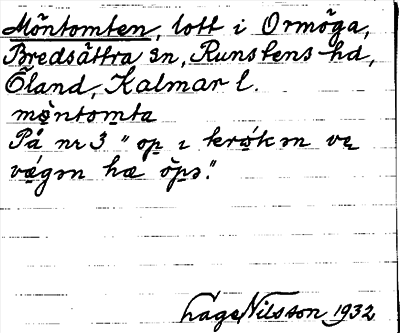 Möntomten, lott i Ormöga,
Bredsättra sn, Runstens hd,
Öland, Kalmar l.
möntomta
På nr 3 "op i krókən ve
vǽgən hæ ōps."
Lage Nilsson 1932